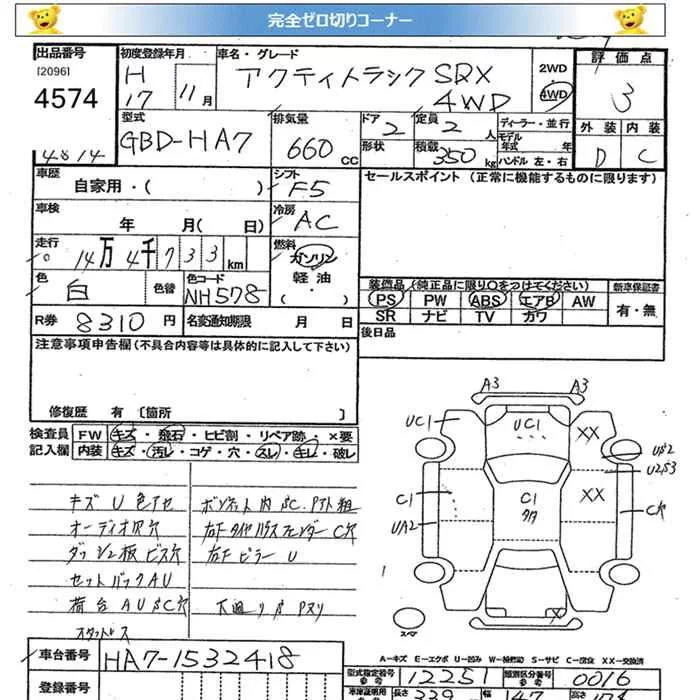 完全ゼロ切りコーナー
出品番号 初度登録年月 車名・グレード 評価点
[2096] H アクティトラック SDX 2WD 3
4574 17 11月 4WD 4WD
型式 排気量 ドア 定員 ディーラー・並行 外装 内装
GBD-HA7 660cc 2 2人 モデル年式 年 D C
4814 形状 積載 350kg ハンドル 左・右
車歴 シフト セールスポイント (正常に機能するものに限ります)
自家用・( ) F5
車検 冷房
年 月( 日) AC
走行 燃料
14万4千733km ガソリン
色 白 色替 色コード NH578 軽油
( )
装備品(純正品に限り○をつけてください) 新車保証書
PS PW ABS エアB AW 有・無
SR ナビ TV カワ
R券 8310円 名変通知期限 月 日 後日品
注意事項申告欄(不具合内容等は具体的に記入して下さい)
修復歴 有 [箇所 ]
検査員 FW キズ・飛石・ヒビ割・リペア跡・×要
記入欄 内装 キズ・汚レ・コゲ・穴・スレ・キレ・破レ
キズ U 色アセ ボンネット内 SC. Pアト粗
オーディオ爪穴 右下タイヤハウスフェンダー C穴
ダッシュ板ビス穴 右下ピラー U
セットバックAU
荷台 AU SC穴 下廻り S Pヌリ
スタットレス
A3 A3
UC1 UC1 XX
US2
U2S3
C1 C1 XX C穴
UA2 タタ
X
スペア
A-キズ E-エクボ U-凹み W-補修跡 S-サビ C-腐食 XX-交換済
車台番号 HA7-1532418
型式指定番号 参考 12251 類別区分番号 参考 0016
登録番号 車庫証明用 長さ 339 幅 147 高さ 178